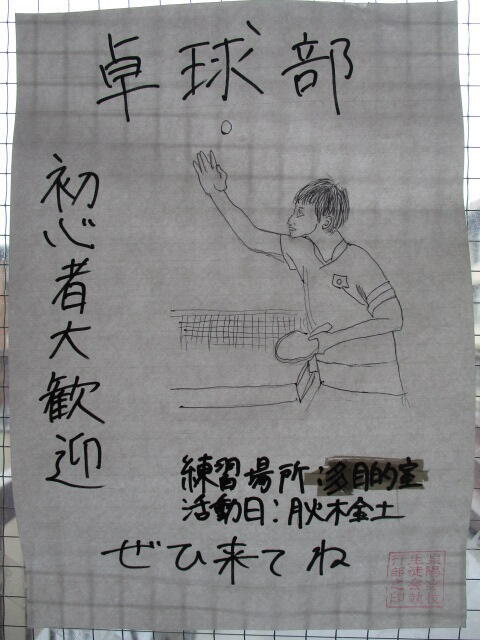 卓球部
初心者大歓迎
練習場所:多目的室
活動日:月火木金土
ぜひ来てね